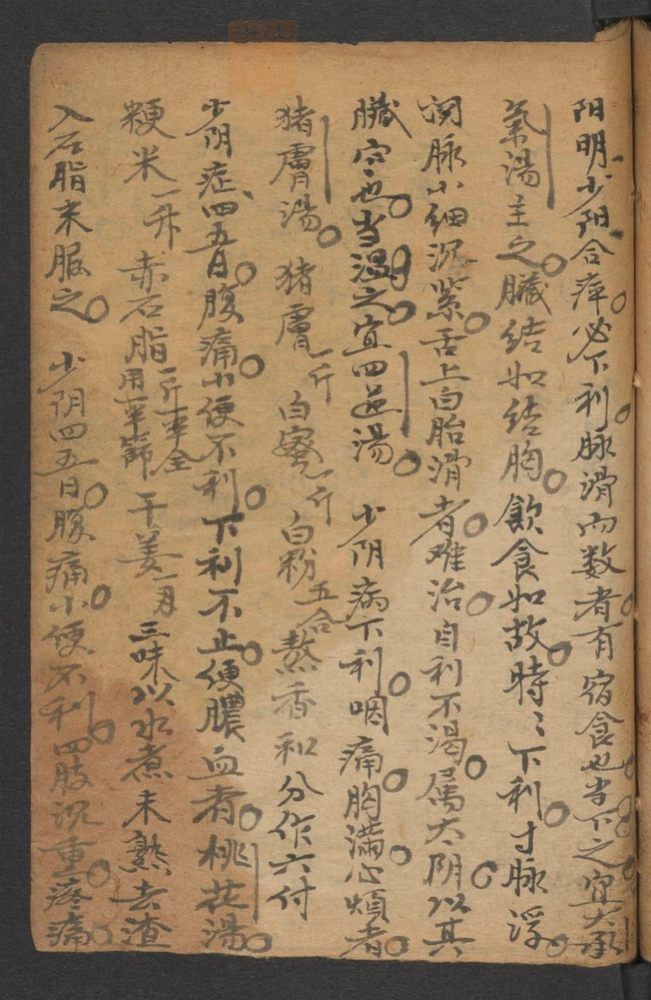 阳明少阳合症。必下利。脉滑而数者。有宿食也。当下之。宜大承
气湯主之。臓结如结胸。飲食如故。時〻下利。寸脉浮。
関脉小细沉紧。舌上白胎滑者。难治。自利不渴。属太阴。以其
臓寒也。当温之。宜四逆湯。少阴病下利。咽痛。胸满。心煩者。
猪膚湯。猪膚一斤 白蜜一斤 白粉五合 熬香和分作六付
少阴症。四五日腹痛。小便不利。下利不止。便膿血者。桃花湯。
粳米一升 赤石脂一斤一半全用一半篩 干姜一月 三味以水煮米熟去渣
入石脂末服之。少阴四五日。腹痛。小便不利。四肢沉重。疼痛。